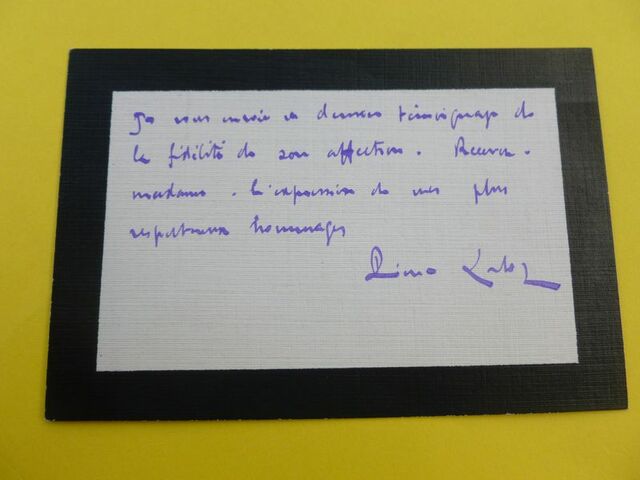 Je vous envoie ce dernier témoignage de
la fidélité de son affection. Recevez,
madame, l'expression de mes plus
respectueux hommages